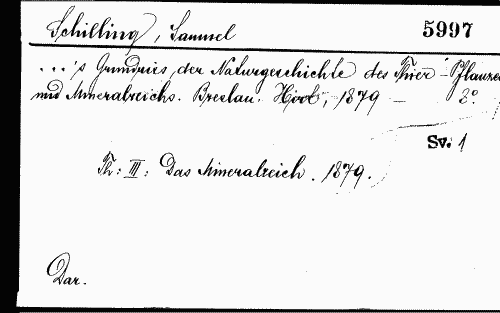 Schilling, Samuel
5997
...'s Grundriss der Naturgeschichte des Thier-Pflanzen
und Mineralreichs. Breslau. Hirt, 1879 — 8°.
Sv. 1
Th: III: Das Mineralreich. 1879.
Dar.